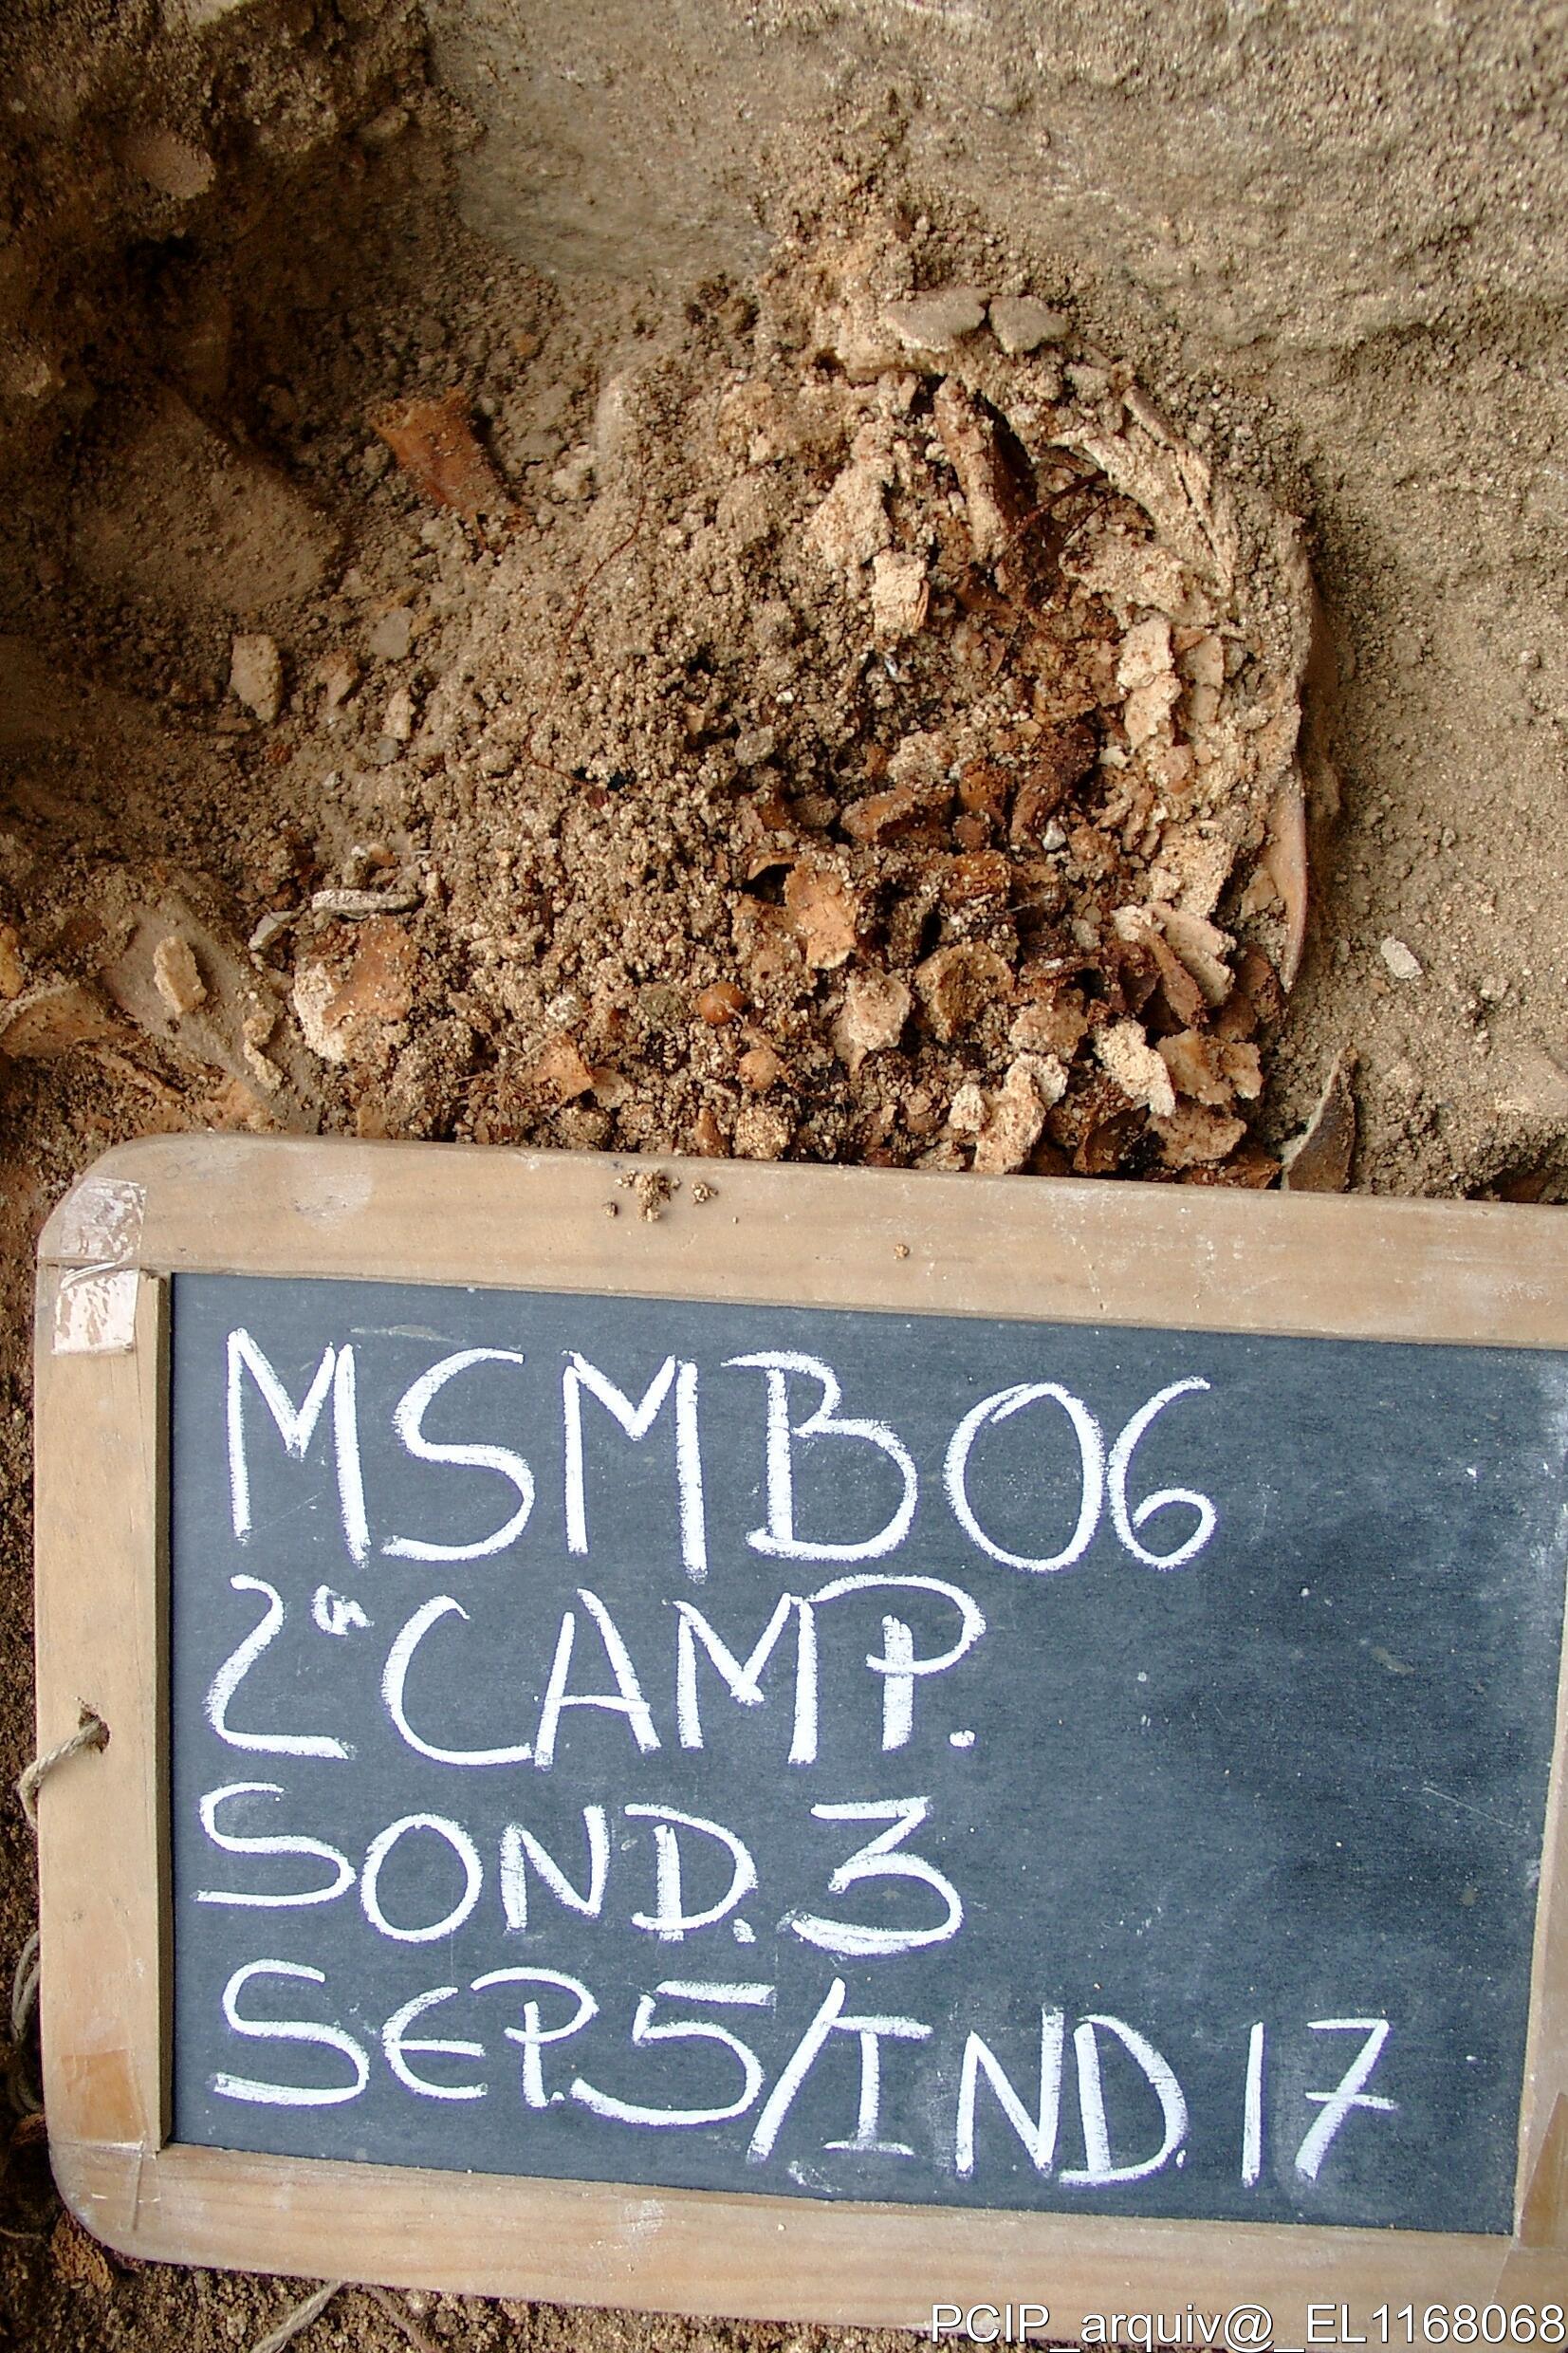 MSMB06
2ª CAMP.
SOND. 3
SEP.5/IND.17
PCIP_arquiv@_EL1168068